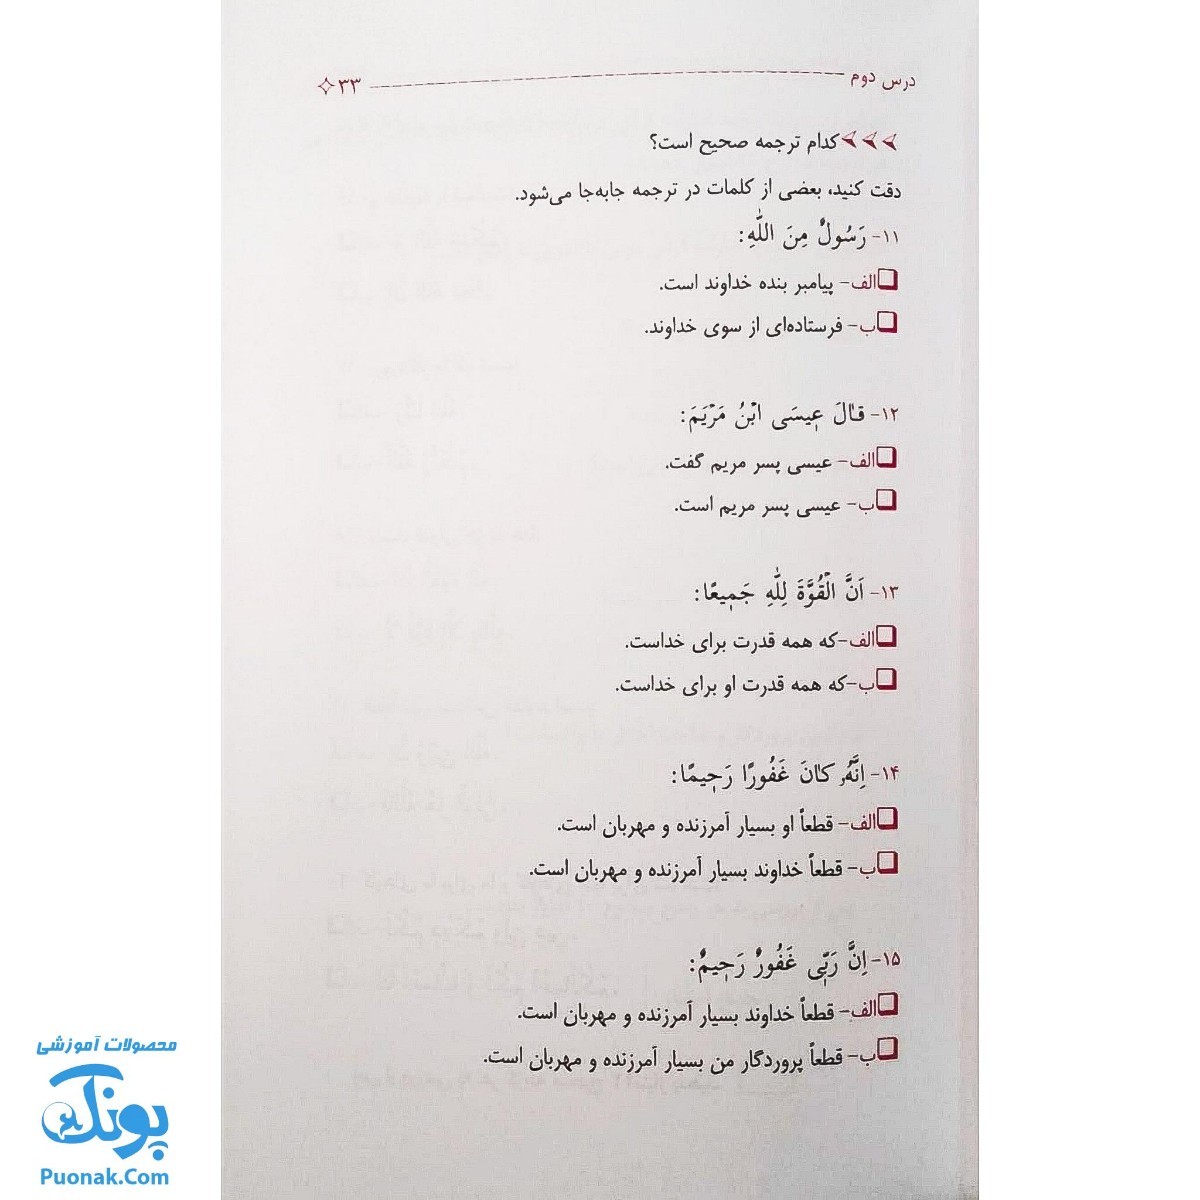 درس دوم ۳۳
کدام ترجمه صحیح است؟
دقت کنید، بعضی از کلمات در ترجمه جابه‌جا می‌شود.
۱۱- رَسُولٌ مِنَ اللّٰهِ:
الف- پیامبر بنده خداوند است.
ب- فرستاده‌ای از سوی خداوند.
۱۲- قالَ عیسَی ابْنُ مَرْیَمَ:
الف- عیسی پسر مریم گفت.
ب- عیسی پسر مریم است.
۱۳- اَنَّ الْقُوَّةَ لِلّٰهِ جَمیعًا:
الف-که همه قدرت برای خداست.
ب-که همه قدرت او برای خداست.
۱۴- اِنَّهُ کانَ غَفُورًا رَحیمًا:
الف- قطعاً او بسیار آمرزنده و مهربان است.
ب- قطعاً خداوند بسیار آمرزنده و مهربان است.
۱۵- اِنَّ رَبّی غَفُورٌ رَحیمٌ:
الف- قطعاً خداوند بسیار آمرزنده و مهربان است.
ب- قطعاً پروردگار من بسیار آمرزنده و مهربان است.
محصولات آموزشی
پونک
Puonak.Com